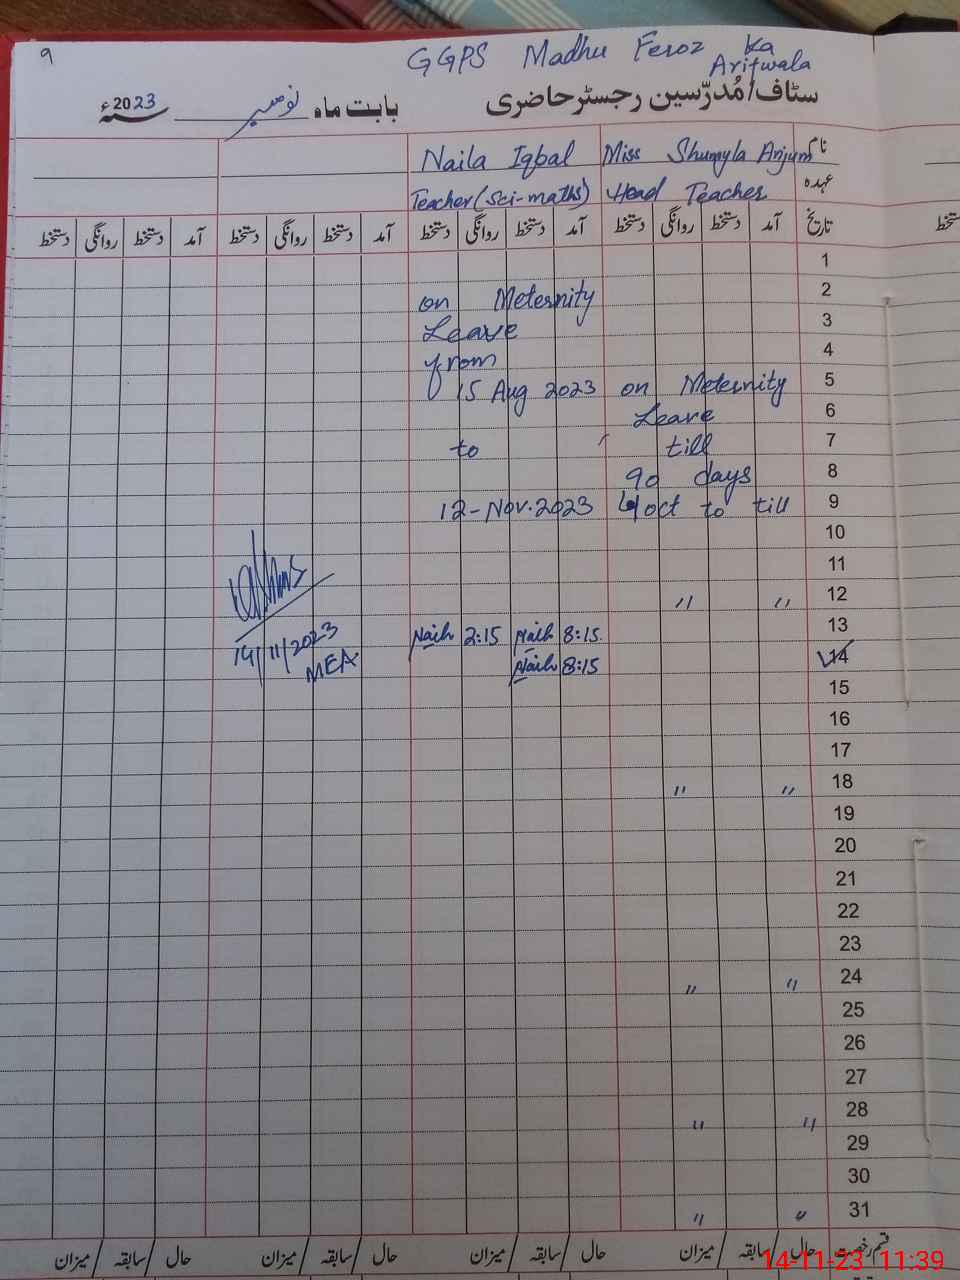 9
GGPS Madhu Feroz Ka
Arifwala
سٹاف/مُدرّسین رجسٹر حاضری
بابت ماہ نومبر سنہ 2023ء
نام Miss Shumyla Anjum Naila Iqbal
عہدہ Head Teacher Teacher (Sci-maths)
تاریخ آمد دستخط روانگی دستخط آمد دستخط روانگی دستخط آمد دستخط روانگی دستخط آمد دستخط روانگی دستخط
دستخط
1
on Meternity 2
Leave 3
from 4
15 Aug 2023 on Meternity 5
Leave 6
to till 7
90 days 8
12-Nov.2023 4 oct to till 9
10
11
" " 12
Naila 2:15 Naila 8:15 13
Naila 8:15 14
14/11/2023
MEA
15
16
17
" " 18
19
20
21
22
23
" " 24
25
26
27
" " 28
29
30
" " 31
قسم رخصت حال سابقہ میزان حال سابقہ میزان حال سابقہ میزان حال سابقہ میزان
14-11-23 11:39